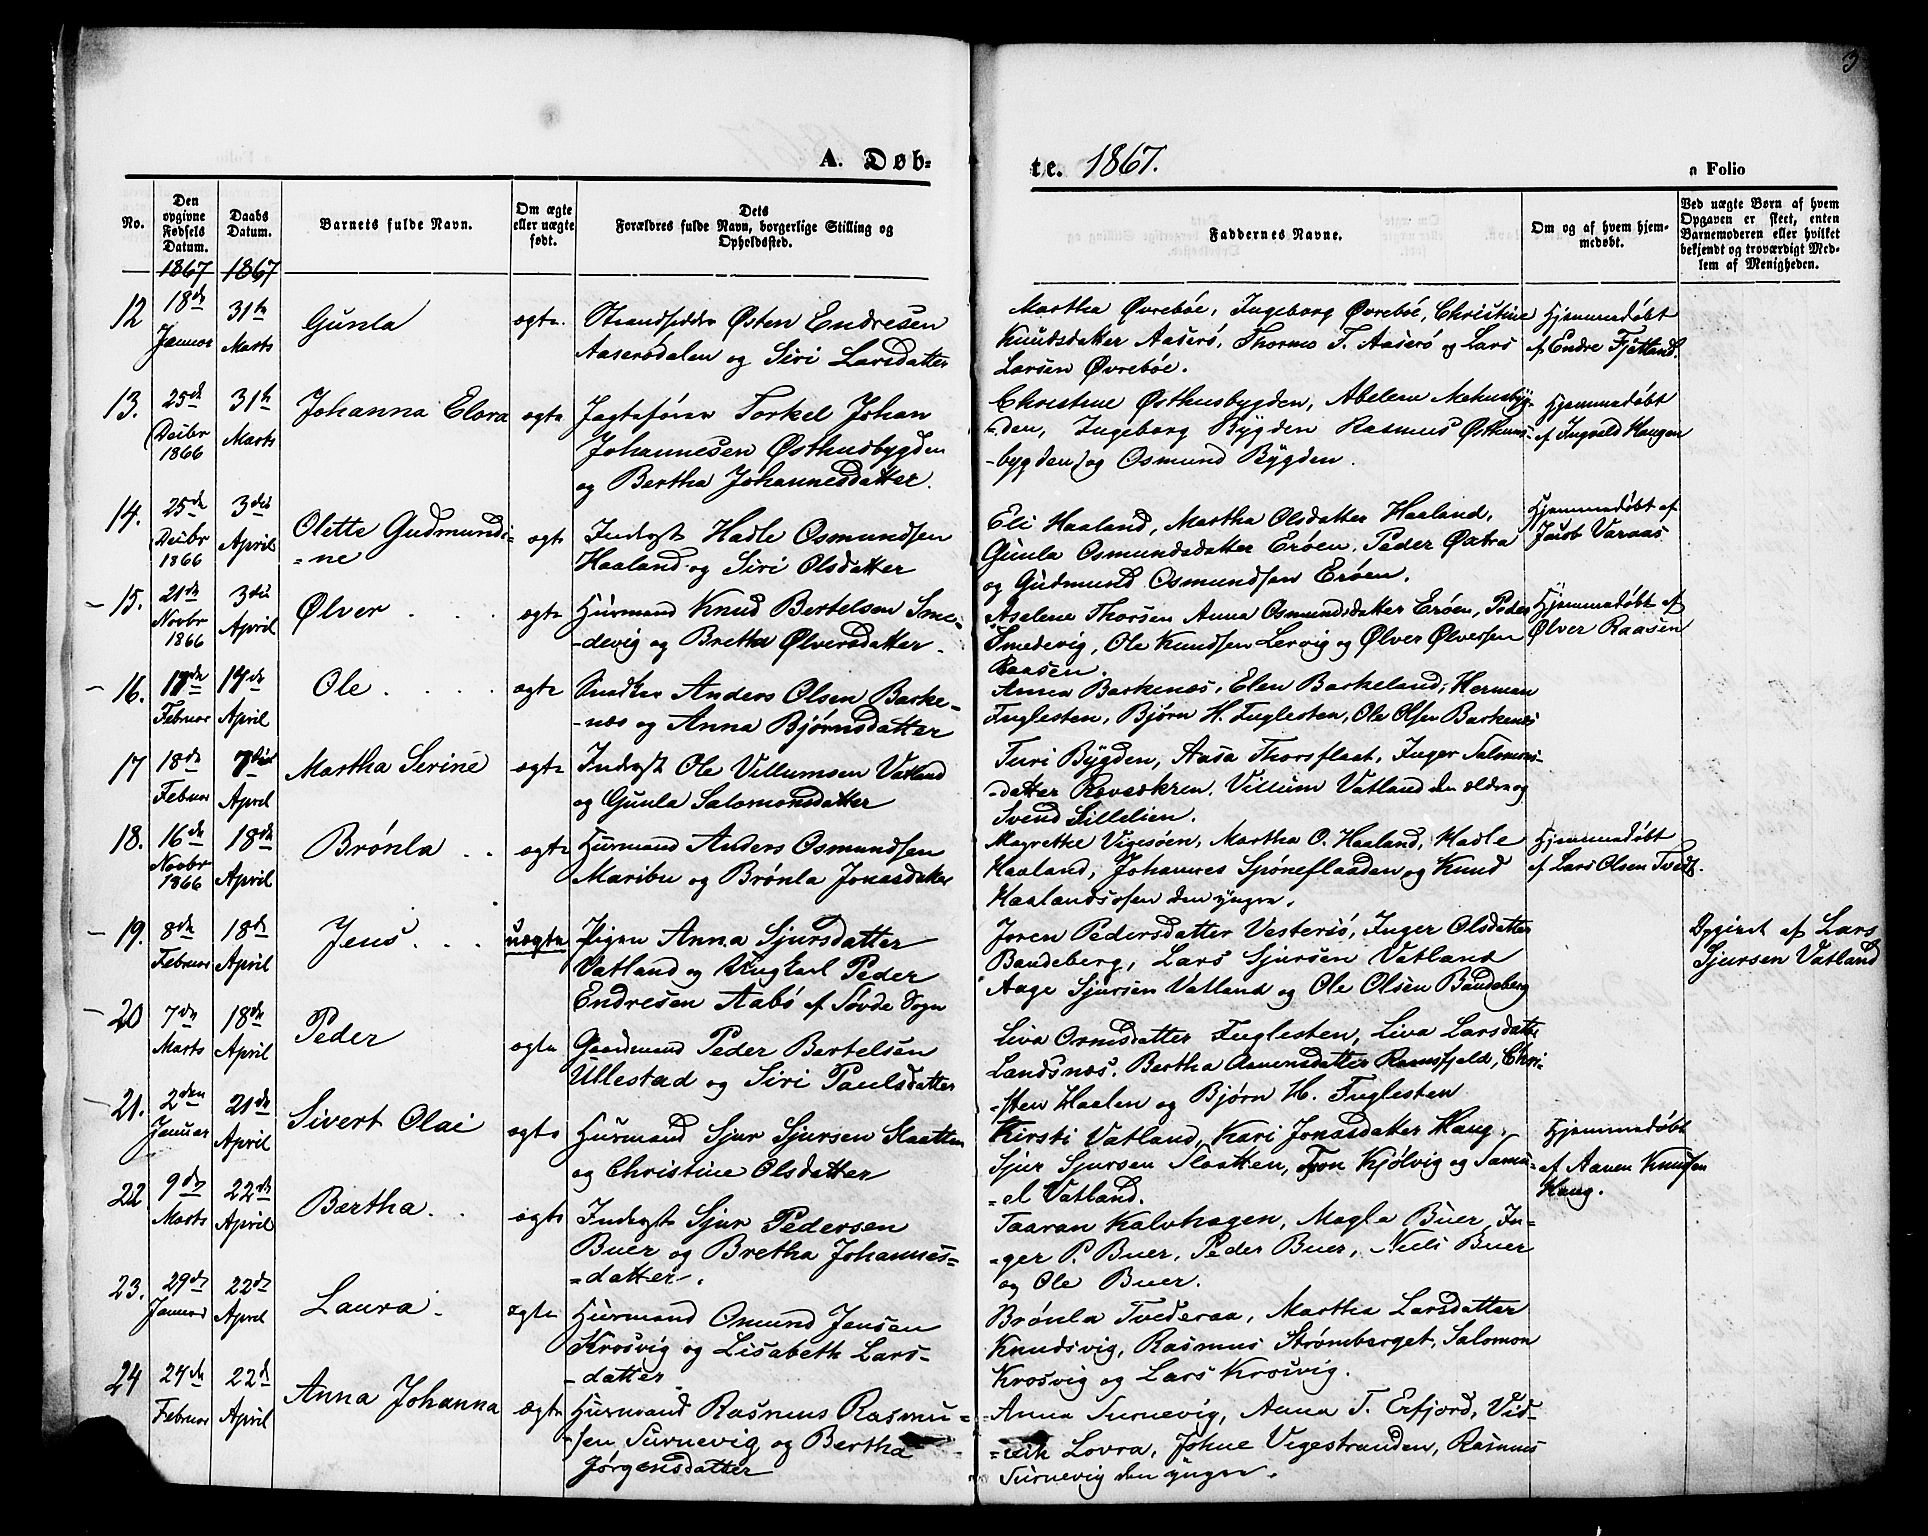 3
A. Døb-
te. 1867.
Folio
No.
Den opgivne Fødsels Datum.
Daabs Datum.
Barnets fulde Navn.
Om ægte eller uægte født.
Dets Forældres fulde Navn, borgerlige Stilling og Opholdssted.
Faddernes Navne.
Om og af hvem hjemmedøbt.
Ved uægte Børn af hvem Opgaven er skeet, enten Barnemoderen eller hvilket bekjendt og troværdigt Medlem af Menigheden.
1867 1867
12 18de Januar
31te Marts
Gunla
ægte
Strandsidder Østen Endresen
Aaserødalen og Siri Larsdatter
Martha Øvrebøe, Ingeborg Øvrebøe, Christine
Knudsdatter Aaserø, Thormo T. Aaserø og Lars
Larsen Øvrebøe.
Hjemmedøbt
af Endre Fjetland.
13. 25de Decbr 1866
31te Marts
Johanna Elora
ægte
Torkel Johan
Johannesen Østhusbygden
og Bertha Johannesdatter.
Christine Østhusbygden, Abelene
-den, Ingeborg Bygden Rasmus Østhuus-
-bygden og Osmund Bygden.
Hjemmedøbt
af Ingvald Haugen
14. 25de Decbr 1866
3die April
Olette Gudmundi-
-ne
ægte
Inderst Hadle Osmundsen
Haaland og Siri Olsdatter
Eli Haaland, Martha Olsdatter Haaland,
Gunla Osmundsdatter Erøen, Peder Østra
og Gudmund Osmundsen Erøen.
Hjemmedøbt af
Jacob Varaas
15. 21de Novbr 1866
3die April
Ølver
ægte
Huusmand Knud Bertelsen Sme-
-devig og Bretha Ølversdatter.
Aselene Thorsen Anna Osmundsdatter Erøen, Peder
Smedevig, Ole Knudsen Lervig og Ølver Ølversen
Raasen.
Hjemmedøbt af
Ølver Raasen
16. 17de Februar
April
Ole
ægte
Snedker Anders Olsen Barke-
-næs og Anna Bjørnsdatter
Anna Barkenæs, Elen Barkeland, Herman
Fuglesten, Bjørn H. Fuglesten, Ole Olsen Barkenæs
17 18de Februar
April
Martha Serine
ægte
Inderst Ole Villumsen Vatland
og Gunla Salomonsdatter
Turi Bygden, Aasa Thorsflaat, Inger Salomons-
-datter Rævsækren, Villum Vatland den ældre og
Svend Lillelien.
18. 16de Novbr 1866
18de April
Brønla
ægte
Huusmand Anders Osmundsen
Maribu og Brønla Jonasdatter
Magrethe Vigesøen, Martha O. Haaland, Hadle
Haaland, Johannes Spøneflaaden og Knud
Haalandsosen den yngre.
Hjemmedøbt
af Lars Olsen Tvedt.
19. 8de Februar
18de April
Jens
uægte
Pigen Anna Sjursdatter
Vatland og Ungkarl Peder
Endresen Aabø af Søvde Sogn
Joren Pedersdatter Vesterø, Inger Olsdatter
Baudeberg, Lars Sjursen Vatland
Aage Sjursen Vatland og Ole Olsen Baudeberg
Opgivet af Lars
Sjursen Vatland
20 7de Marts
18de April
Peder
ægte
Gaardmand Peder Bertelsen
Ullestad og Siri Paulsdatter
Liva Ormsdatter Fuglesten, Liva Larsdatter
Landsnæs, Bertha Aamundsdatter Ramsfjeld, Chri-
-sten Haalen og Bjørn H. Fuglesten
21. 2den Januar
21de April
Sivert Olai
ægte
Huusmand Sjur Sjursen Slaatten
og Christine Olsdatter
Kirsti Vatland, Kari Jonasdatter Haug,
Sjur Sjursen Slaatten, Tron Kjølvig og Samu-
-el Vatland.
Hjemmedøbt
af Aanen Knudsen
Haug.
22 9de Marts
22de April
Bertha
ægte
Inderst Sjur Pedersen
Buer og Bretha Johannes-
-datter.
Taaran Kalvhagen, Magla Buer, In-
-ger P. Buer, Peder Buer, Niels Buer
og Ole Buer.
23. 29de Januar
22de April
Laura
ægte
Huusmand Osmund Jensen
Krosvig og Lisabeth Lars-
-datter
Brønla Tvederaa, Martha Larsdatter
Knudsvig, Rasmus Strømberget, Salomon
Krosvig og Lars Krosvig.
24 24de Februar
22de April
Anna Johanna
ægte
Huusmand Rasmus Rasmu-
-sen Turnevig og Bertha
Jørgensdatter
Anna Turnevig, Anna T. Erfjord, Vid-
-rik Lovra, Johne Vigestranden, Rasmus
Turnevig den yngre.